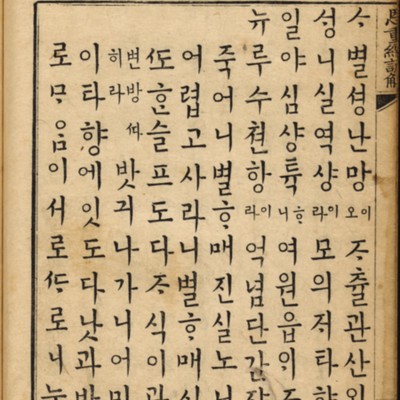 恩重經諺解
ᄉᆞ별셩난망이오ᄌᆞ츌관산외
셩니실역샹이라모의ᄌᆡ타향
일야심샹튝ᄒᆞ니여원읍의ᄌᆞ
뉴루수쳔항이라억념단간쟝
죽어니별ᄒᆞ매진실노니
어렵고사라니별ᄒᆞ매
ᄯᅩᄒᆞᆫ슬프도다ᄌᆞ식이관
변방ᄯᅡ히라밧긔나가니어미
이타향에잇도다낫과밤
로ᄆᆞᄋᆞᆷ이서로ᄯᆞ로니눈